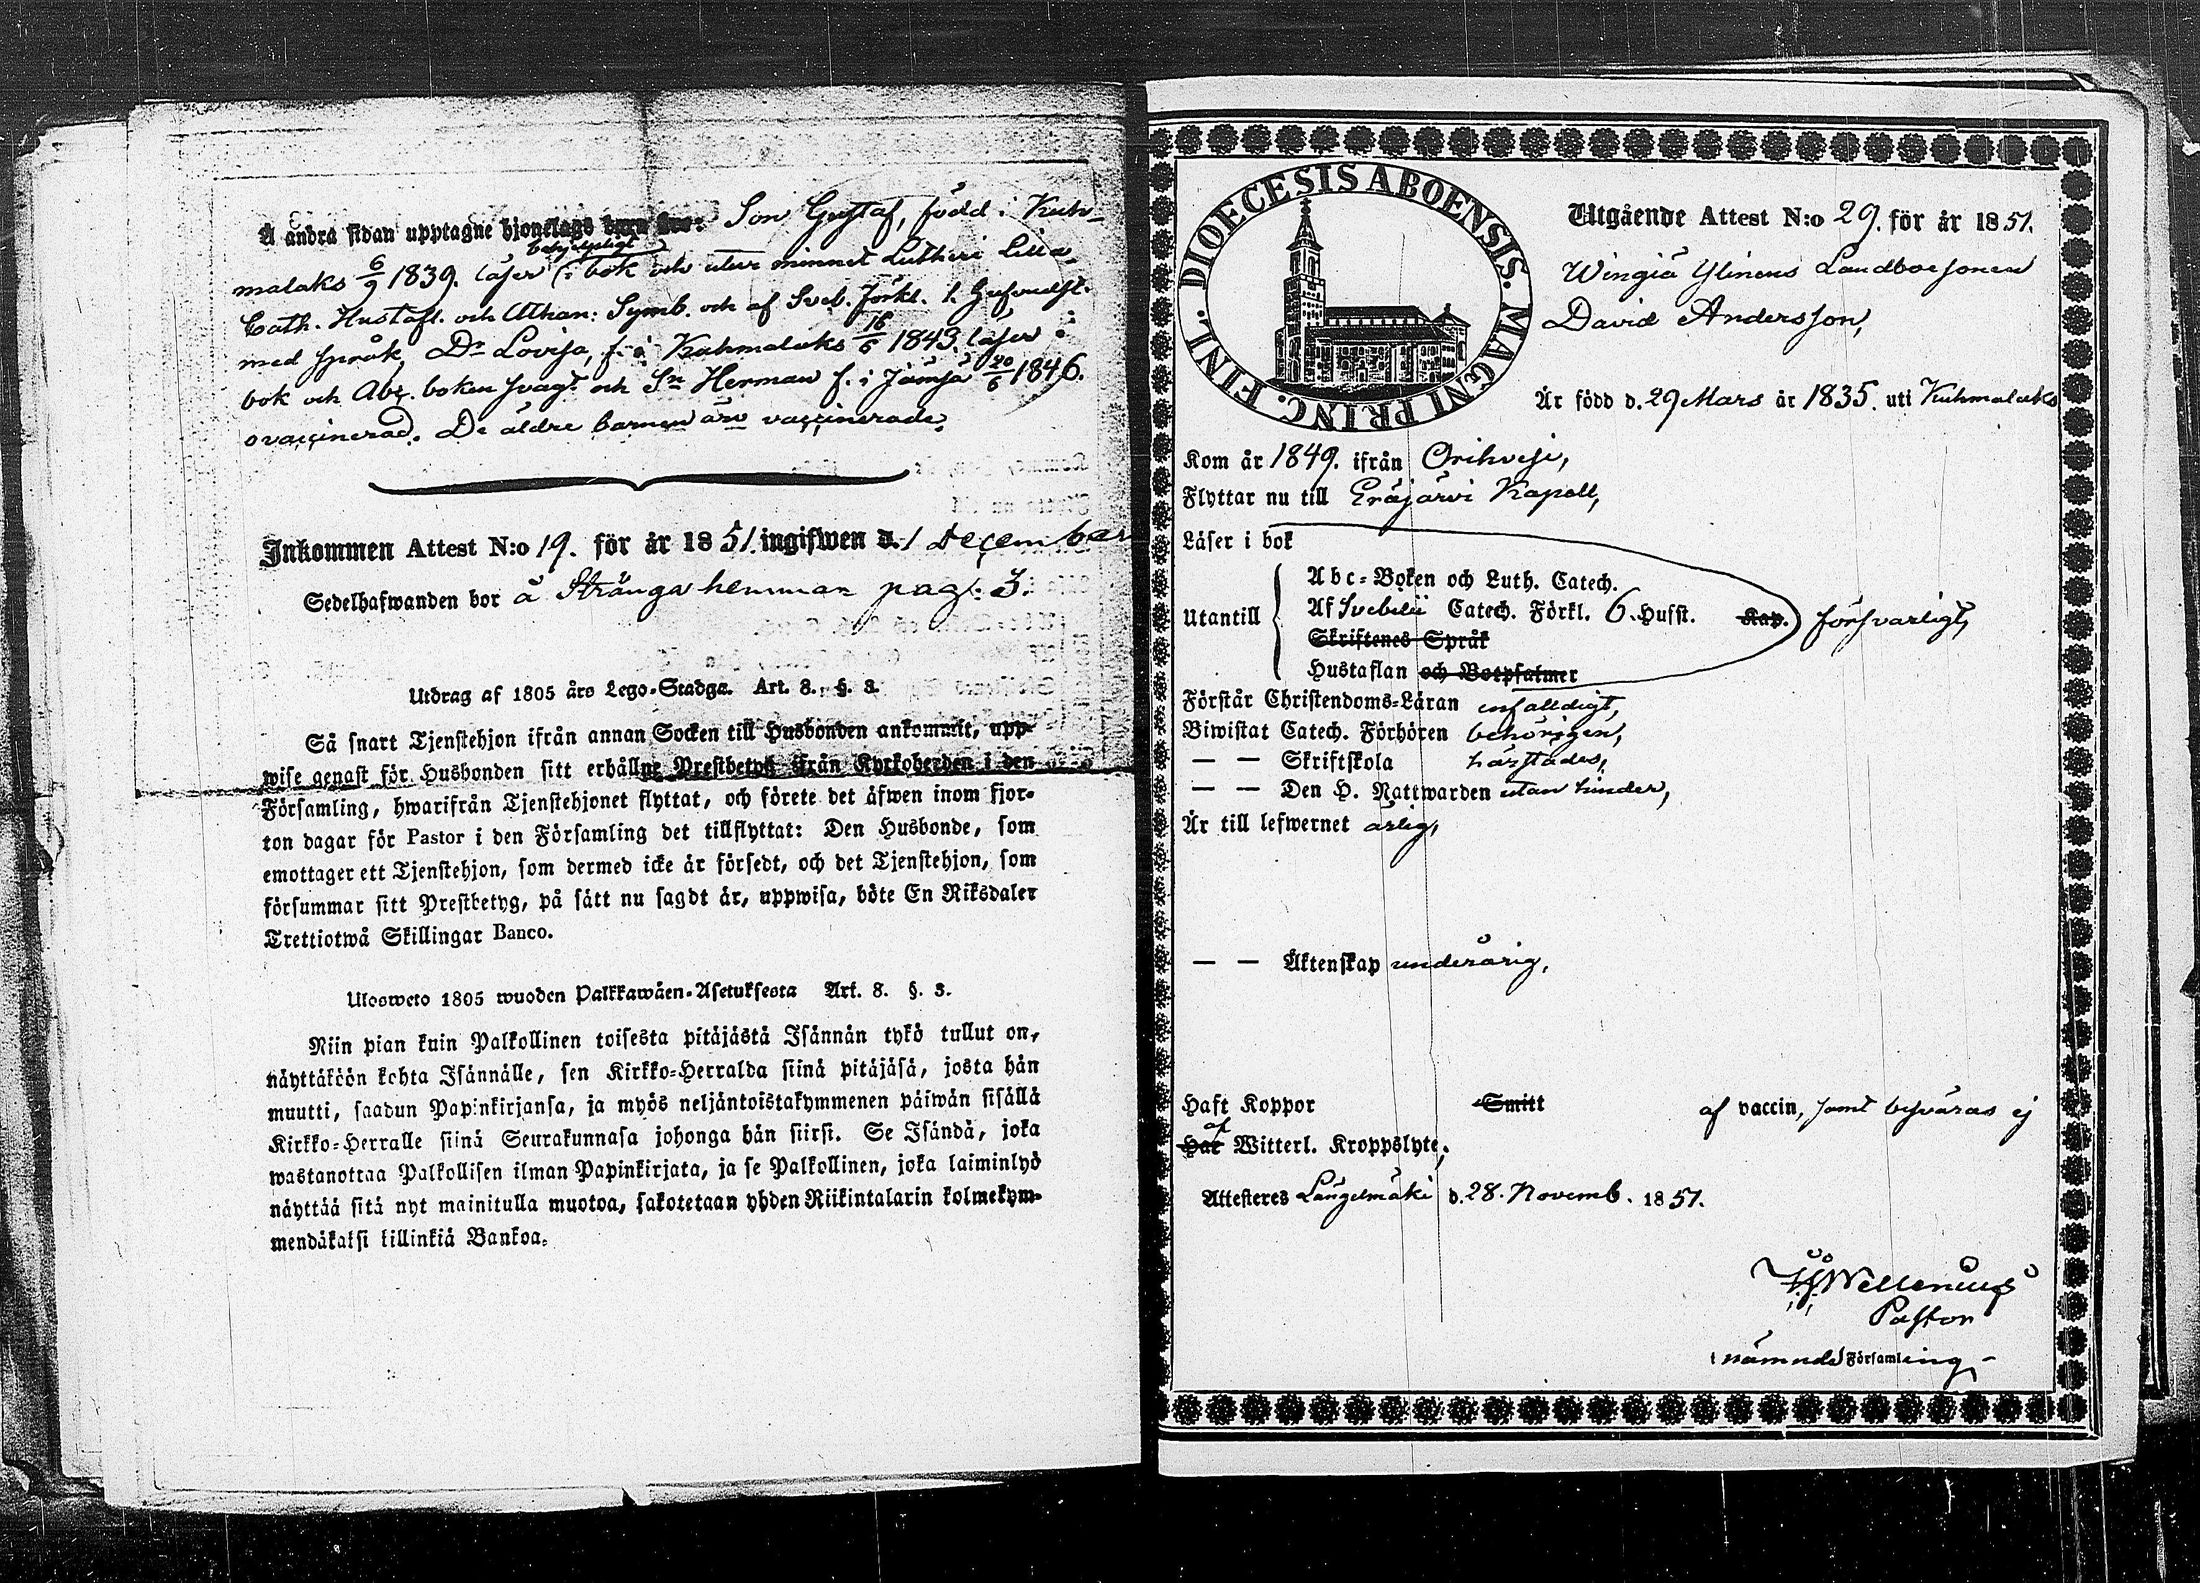 Å andra sidan upptagne hjonelags barn äro: Son Gustaf, född i Kuh-
malaks 6/9 1839. läser behjelpligt i bok och utur minnet Lutheri Lilla
Cath. Hustafl. och Athan: Symb. och af Sveb. Förkl. 1. Hufvudst.
med språk, Dr Lovisa, f. i Kuhmalaks 16/6 1843. läser i
bok och Abc. boken svagt och Sn Herman f. i Jämsä 20/6 1846.
ovaccinerad. De äldre barnen äro vaccinerade.
Inkommen Attest N:o 19. för år 1851. ingifwen d. 1 December
Sedelhafwanden bor å Strånga hemman pag. 3.
Utdrag af 1805 års Lego-Stadga. Art. 8. §. 3.
Så snart Tjenstehjon ifrån annan Socken till Husbonden ankommit, upp-
wise genast för Husbonden sitt erhållne Prestbetyg ifrån Kyrkoherden i den
Församling, hwarifrån Tjenstehjonet flyttat, och förete det äfwen inom fjor-
ton dagar för Pastor i den Församling det tillflyttat: Den Husbonde, som
emottager ett Tjenstehjon, som dermed icke är försedt, och det Tjenstehjon, som
försummar sitt Prestbetyg, på sätt nu sagdt är, uppwisa, böte En Riksdaler
Trettiotwå Skillingar Banco.
Ulosweto 1805 wuoden Palkkawäen-Asetuksesta Art. 8. §. 3.
Niin pian kuin Palkollinen toisesta pitäjästä Isännän tykö tullut on,
näyttäköön kohta Isännälle, sen Kirkko-Herralda siinä pitäjäsä, josta hän
muutti, saadun Papinkirjansa, ja myös neljäntoistakymmenen päiwän sisällä
Kirkko-Herralle siinä Seurakunnasa johonga hän siirsi. Se Isändä, joka
wastanottaa Palkollisen ilman Papinkirjata, ja se Palkollinen, joka laiminlyö
näyttää sitä nyt mainitulla muotoa, sakotetaan yhden Riikintalarin kolmekym-
mendäkaksi killinkiä Bankoa.
DIOECESIS ABOENSIS. MAGNI PRINC. FINL.
Utgående Attest N:o 29. för år 1851.
Wingiä Ylinens Landboesonen
David Andersson,
Är född d. 29 Mars år 1835. uti Kuhmalaks
Kom år 1849. ifrån Orihvesi,
Flyttar nu till Eräjärvi Kapell,
Läser i bok
Abc-Boken och Luth. Catech.
Utantill Af Svebelii Catech. Förkl. 6. Hufst. Kap. försvarligt,
Skriftenes Språk
Hustaflan och Botpsalmer
Förstår Christendoms-Läran enfalldigt,
Biwistat Catech. Förhören behörigen,
— — Skriftskola härstädes,
— — Den H. Nattwarden utan hinder,
Är till lefwernet ärlig,
— — Äktenskap underårig,
Haft Koppor Smitt af vaccin, samt besväras ej
Har af Witterl. Kroppslyte.
Attesteres Längelmäki d. 28. Novemb. 1851.
Wellenius
Pastor
i nämnde Församling